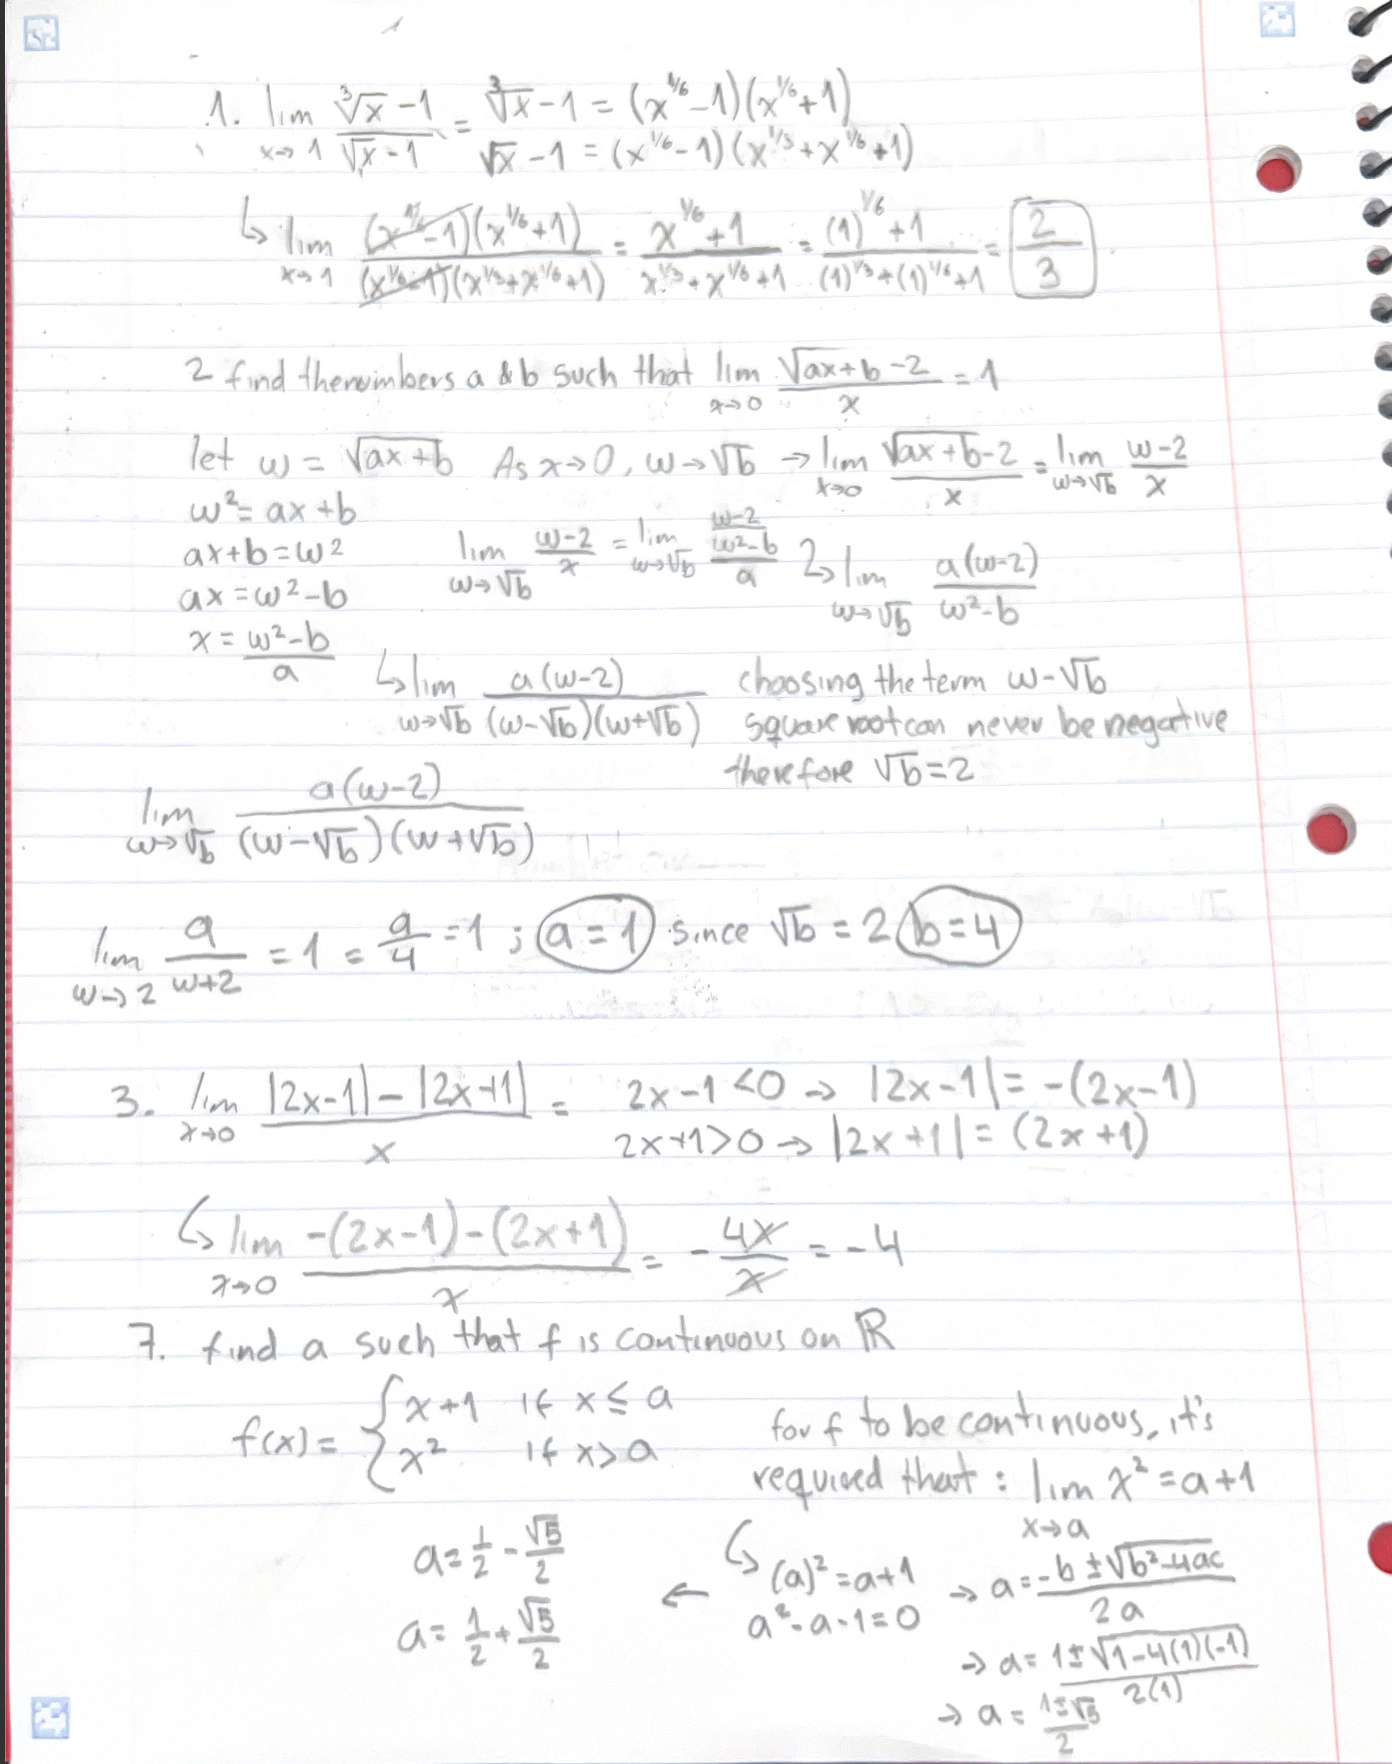 1. lim x→1 (∛x - 1)/(√x - 1) = ∛x - 1 = (x^1/6 - 1)(x^1/6 + 1)
√x - 1 = (x^1/6 - 1)(x^1/3 + x^1/6 + 1)
↳ lim x→1 (x^1/6 - 1)(x^1/6 + 1)/(x^1/6 - 1)(x^1/3 + x^1/6 + 1) = (x^1/6 + 1)/(x^1/3 + x^1/6 + 1) = ((1)^1/6 + 1)/((1)^1/3 + (1)^1/6 + 1) = 2/3
2 find the numbers a & b such that lim x→0 (√ax+b - 2)/x = 1
let w = √ax+b As x→0, w→√b → lim x→0 (√ax+b - 2)/x = lim w→√b (w-2)/x
w² = ax + b
ax + b = w²
lim w→√b (w-2)/x = lim w→√b (w-2)/((w²-b)/a) ↳ lim w→√b a(w-2)/(w²-b)
ax = w² - b
x = (w² - b)/a
↳ lim w→√b a(w-2)/(w-√b)(w+√b) choosing the term w-√b
square root can never be negative
therefore √b = 2
lim w→√b a(w-2)/(w-√b)(w+√b)
lim w→2 a/(w+2) = 1 = a/4 = 1 ; a = 1 since √b = 2 b = 4
3. lim x→0 (|2x-1| - |2x+1|)/x = 2x-1 < 0 → |2x-1| = -(2x-1)
2x+1 > 0 → |2x+1| = (2x+1)
↳ lim x→0 (-(2x-1) - (2x+1))/x = -4x/x = -4
7. find a such that f is continuous on ℝ
f(x) = { x+1 if x ≤ a
x² if x > a
for f to be continuous, it's
required that : lim x→a x² = a+1
↳ (a)² = a+1
a² - a - 1 = 0
→ a = (-b ± √b²-4ac)/2a
→ a = (1 ± √1-4(1)(-1))/2(1)
→ a = (1±√5)/2
←
a = 1/2 - √5/2
a = 1/2 + √5/2